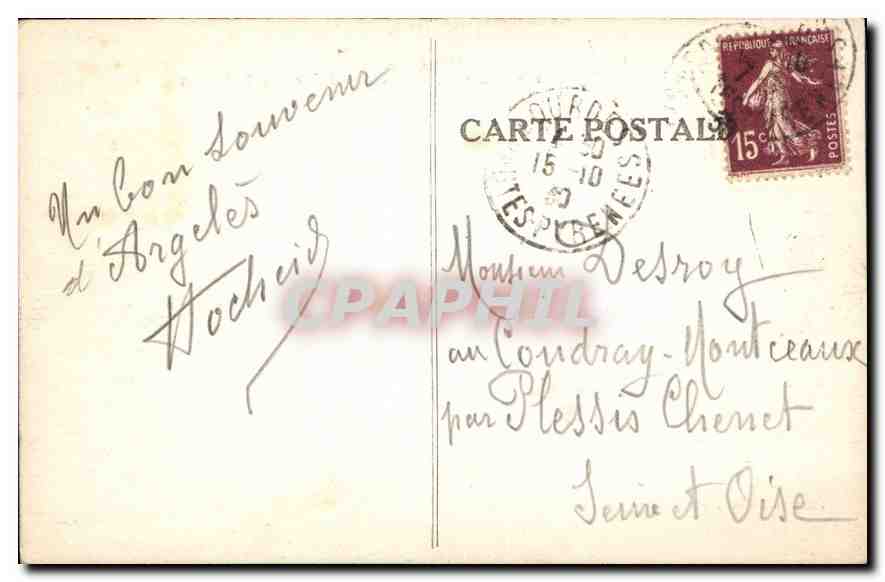 CARTE POSTALE
REPUBLIQUE FRANÇAISE
15c
POSTES
LOURDES
15 -10
30
HTES-PYRENEES
Un bon souvenir
d'Argelès
Hocheid
Monsieur Desroy
au Coudray-Montceaux
par Plessis Chenet
Seine et Oise
CPAPHIL